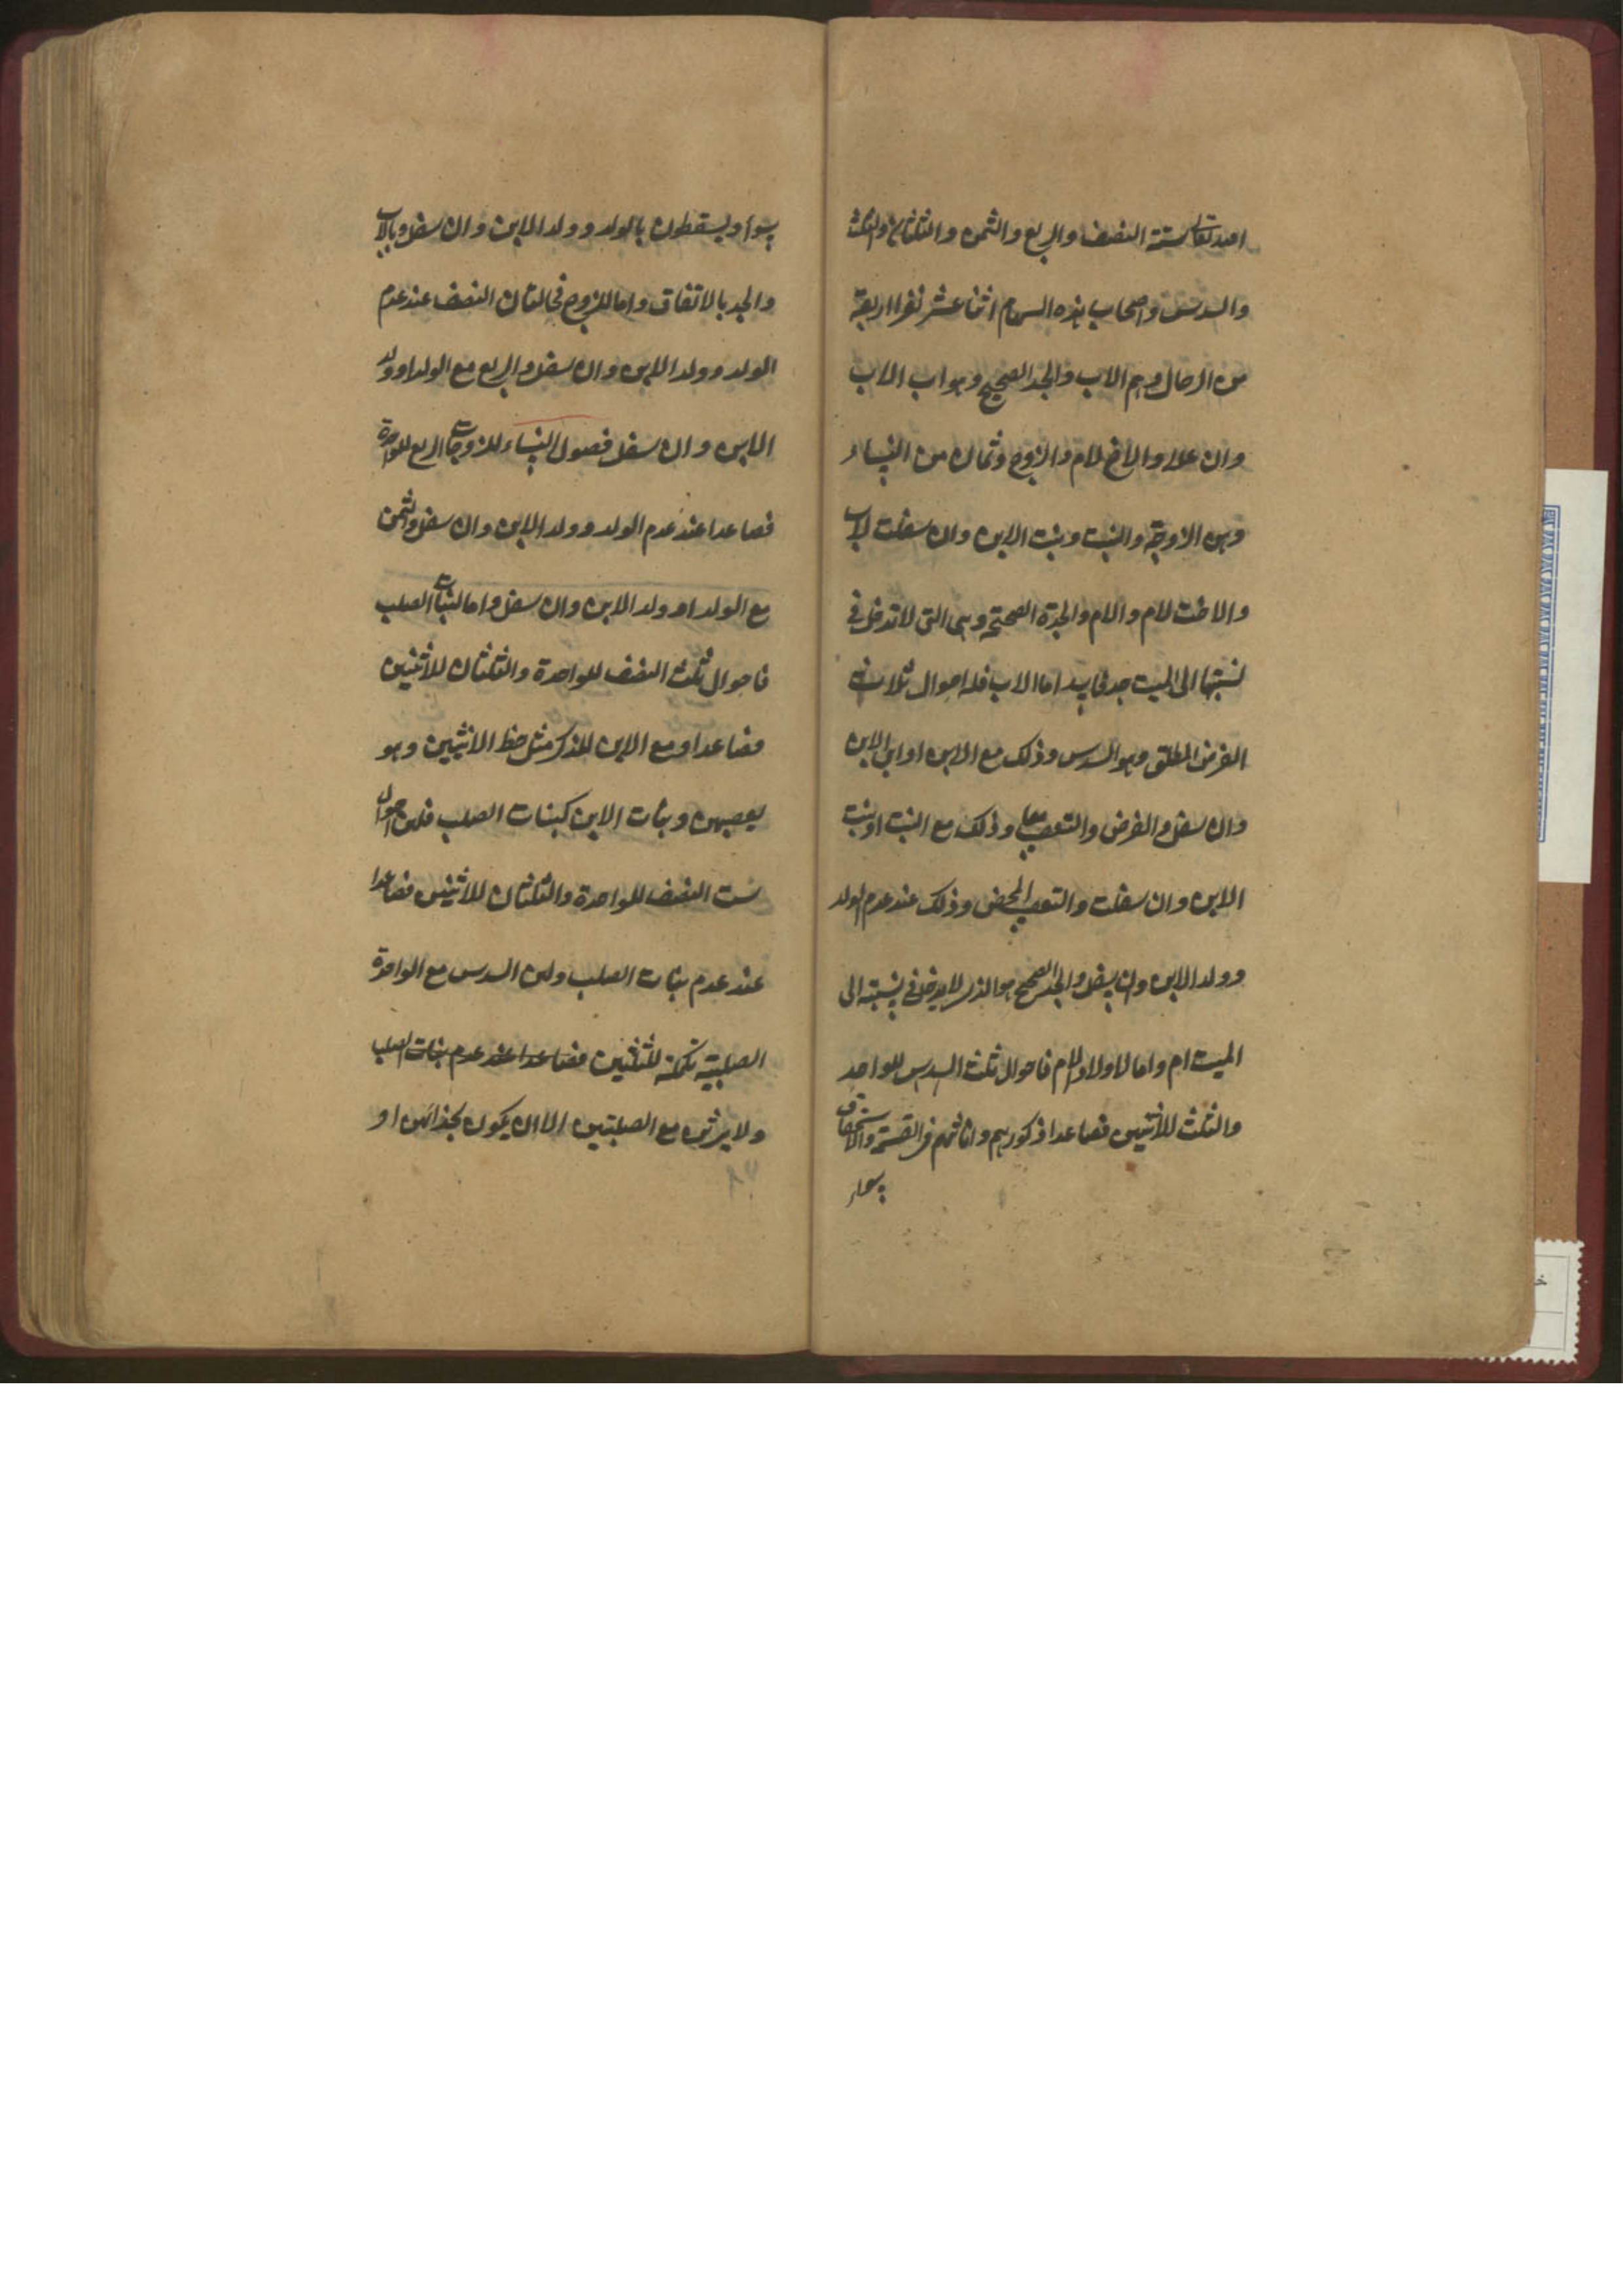 الله تعالى ستة النصف والربع والثمن والثلثان والثلث
والسدس واصحاب هذه السهام اثنا عشر نفرا اربعة
من الرجال وهم الاب والجد الصحيح وهو اب الاب
وان علا والاخ لام والزوج وثمان من النساء
وهن الزوجة والبنت وبنت الابن وان سفلت لاب
والاخت لام والام والجدة الصحيحة وهى التى لا تدخل فى
نسبتها الى الميت جد فاسد اما الاب فله احوال ثلاث
الفرض المطلق وهو السدس وذلك مع الابن او ابن الابن
وان سفل والفرض والتعصيب معا وذلك مع البنت او بنت
الابن وان سفلت والتعصيب المحض وذلك عند عدم الولد
وولد الابن وان سفل والجد الصحيح هو الذى لا يدخل فى نسبته الى
الميت ام واما لاولاد الام فاحوال ثلث السدس للواحد
والثلث للاثنين فصاعدا ذكورهم واناثهم فى القسمة والاستحقاق
سواء
سواء ويسقطون بالولد وولد الابن وان سفل وبالاب
والجد بالاتفاق واما للزوج فحالتان النصف عند عدم
الولد وولد الابن وان سفل والربع مع الولد او ولد
الابن وان سفل فصول النساء للزوجات الربع للواحدة
فصاعدا عند عدم الولد وولد الابن وان سفل والثمن
مع الولد او ولد الابن وان سفل واما لبنات الصلب
فاحوال ثلث النصف للواحدة والثلثان للاثنين
فصاعدا ومع الابن للذكر مثل حظ الانثيين وهو
يعصبهن وبنات الابن كبنات الصلب فلهن احوال
ست النصف للواحدة والثلثان للاثنين فصاعدا
عند عدم بنات الصلب ولهن السدس مع الواحدة
الصلبية تكملة للثلثين فصاعدا عند عدم بنات الصلب
ولا يرثن مع الصلبتين الا ان يكون بحذائهن او